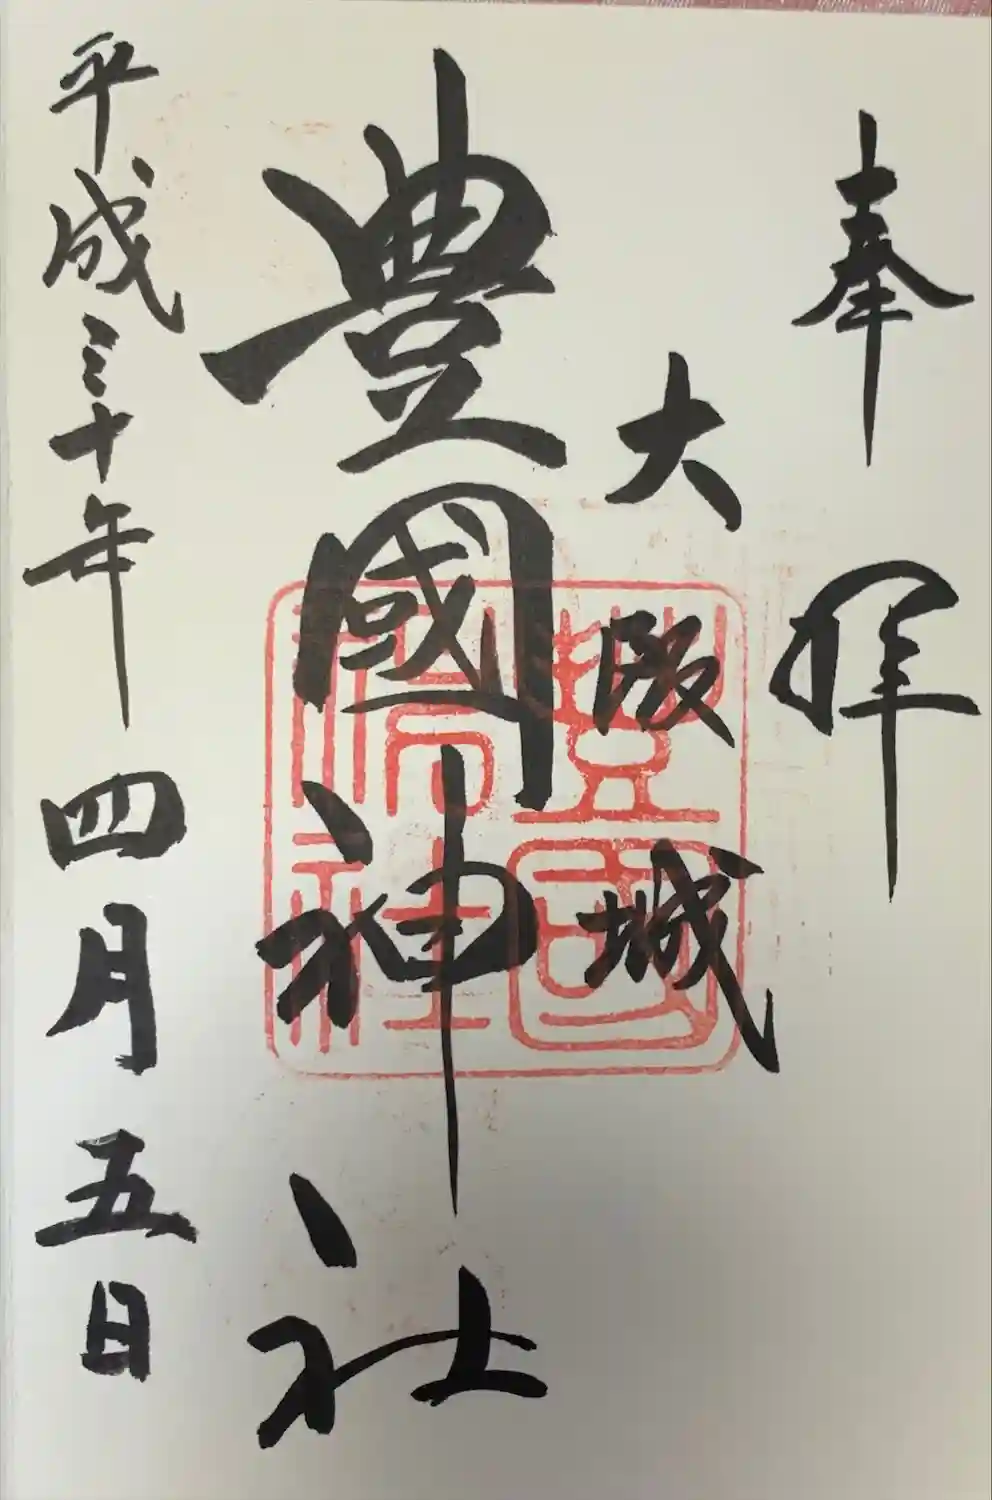 奉拝
大阪城
豊國神社
平成三十年四月五日
豊國神社